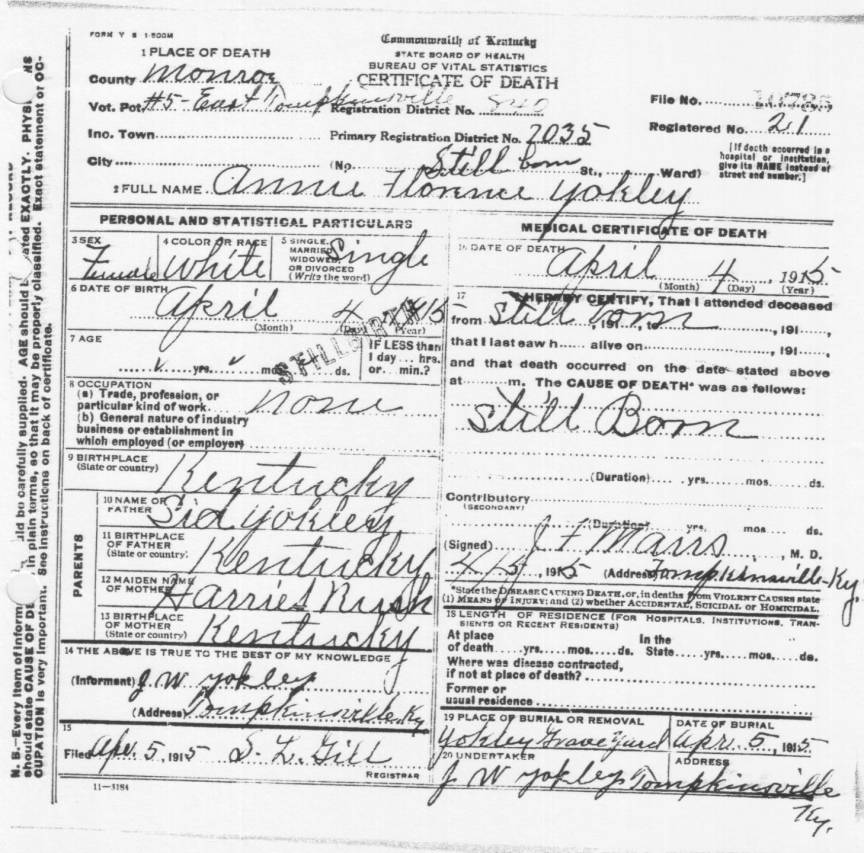 FORM V S 1-500M
Commonwealth of Kentucky
STATE BOARD OF HEALTH
BUREAU OF VITAL STATISTICS
CERTIFICATE OF DEATH
1 PLACE OF DEATH
County Monroe
Vot. Pct #5-East Tompkinsville Registration District No. 840
File No.
Inc. Town Primary Registration District No. 7035
Registered No. 21
City (No. Still Born St., Ward)
[If death occurred in a hospital or institution, give its NAME instead of street and number.]
2 FULL NAME Annie Florence Yokley
PERSONAL AND STATISTICAL PARTICULARS
3 SEX Female
4 COLOR OR RACE White
5 SINGLE, MARRIED, WIDOWED, OR DIVORCED (Write the word) Single
6 DATE OF BIRTH April 4 1915
(Month) (Day) (Year)
STILLBIRTH
7 AGE
yrs. mos. ds.
IF LESS than 1 day ... hrs. or ... min.?
8 OCCUPATION
(a) Trade, profession, or particular kind of work none
(b) General nature of industry
business or establishment in
which employed (or employer)
9 BIRTHPLACE
(State or country) Kentucky
PARENTS
10 NAME OF FATHER Sid Yokley
11 BIRTHPLACE OF FATHER (State or country) Kentucky
12 MAIDEN NAME OF MOTHER Harries Rush
13 BIRTHPLACE OF MOTHER (State or country) Kentucky
14 THE ABOVE IS TRUE TO THE BEST OF MY KNOWLEDGE
(Informant) J W Yokley
(Address) Tompkinsville Ky
15
Filed Apr. 5, 1915 S. L. Gill
REGISTRAR
11-3184
MEDICAL CERTIFICATE OF DEATH
16 DATE OF DEATH April 4, 1915
(Month) (Day) (Year)
17 I HEREBY CERTIFY, That I attended deceased
from Still born, 191, to , 191,
that I last saw h alive on , 191,
and that death occurred on the date stated above
at m. The CAUSE OF DEATH* was as follows:
Still Born
(Duration) yrs. mos. ds.
Contributory
(SECONDARY)
(Duration) yrs. mos. ds.
(Signed) J F Marrs, M. D.
4/5, 1915 (Address) Tompkinsville-Ky.
*State the DISEASE CAUSING DEATH, or, in deaths from VIOLENT CAUSES state
(1) MEANS OF INJURY; and (2) whether ACCIDENTAL, SUICIDAL or HOMICIDAL.
18 LENGTH OF RESIDENCE (FOR HOSPITALS, INSTITUTIONS, TRANSIENTS OR RECENT RESIDENTS)
At place of death yrs. mos. ds. In the State yrs. mos. ds.
Where was disease contracted,
if not at place of death?
Former or
usual residence
19 PLACE OF BURIAL OR REMOVAL Yokley Grave Yard
DATE OF BURIAL Apr. 5, 1915
20 UNDERTAKER J W Yokley
ADDRESS Tompkinsville Ky.
N. B.—Every item of inform uld be carefully supplied. AGE should b ated EXACTLY. PHYSI NS
should state CAUSE OF DE in plain terms, so that it may be properly classified. Exact statement or OC-
CUPATION is very important. See instructions on back of certificate.